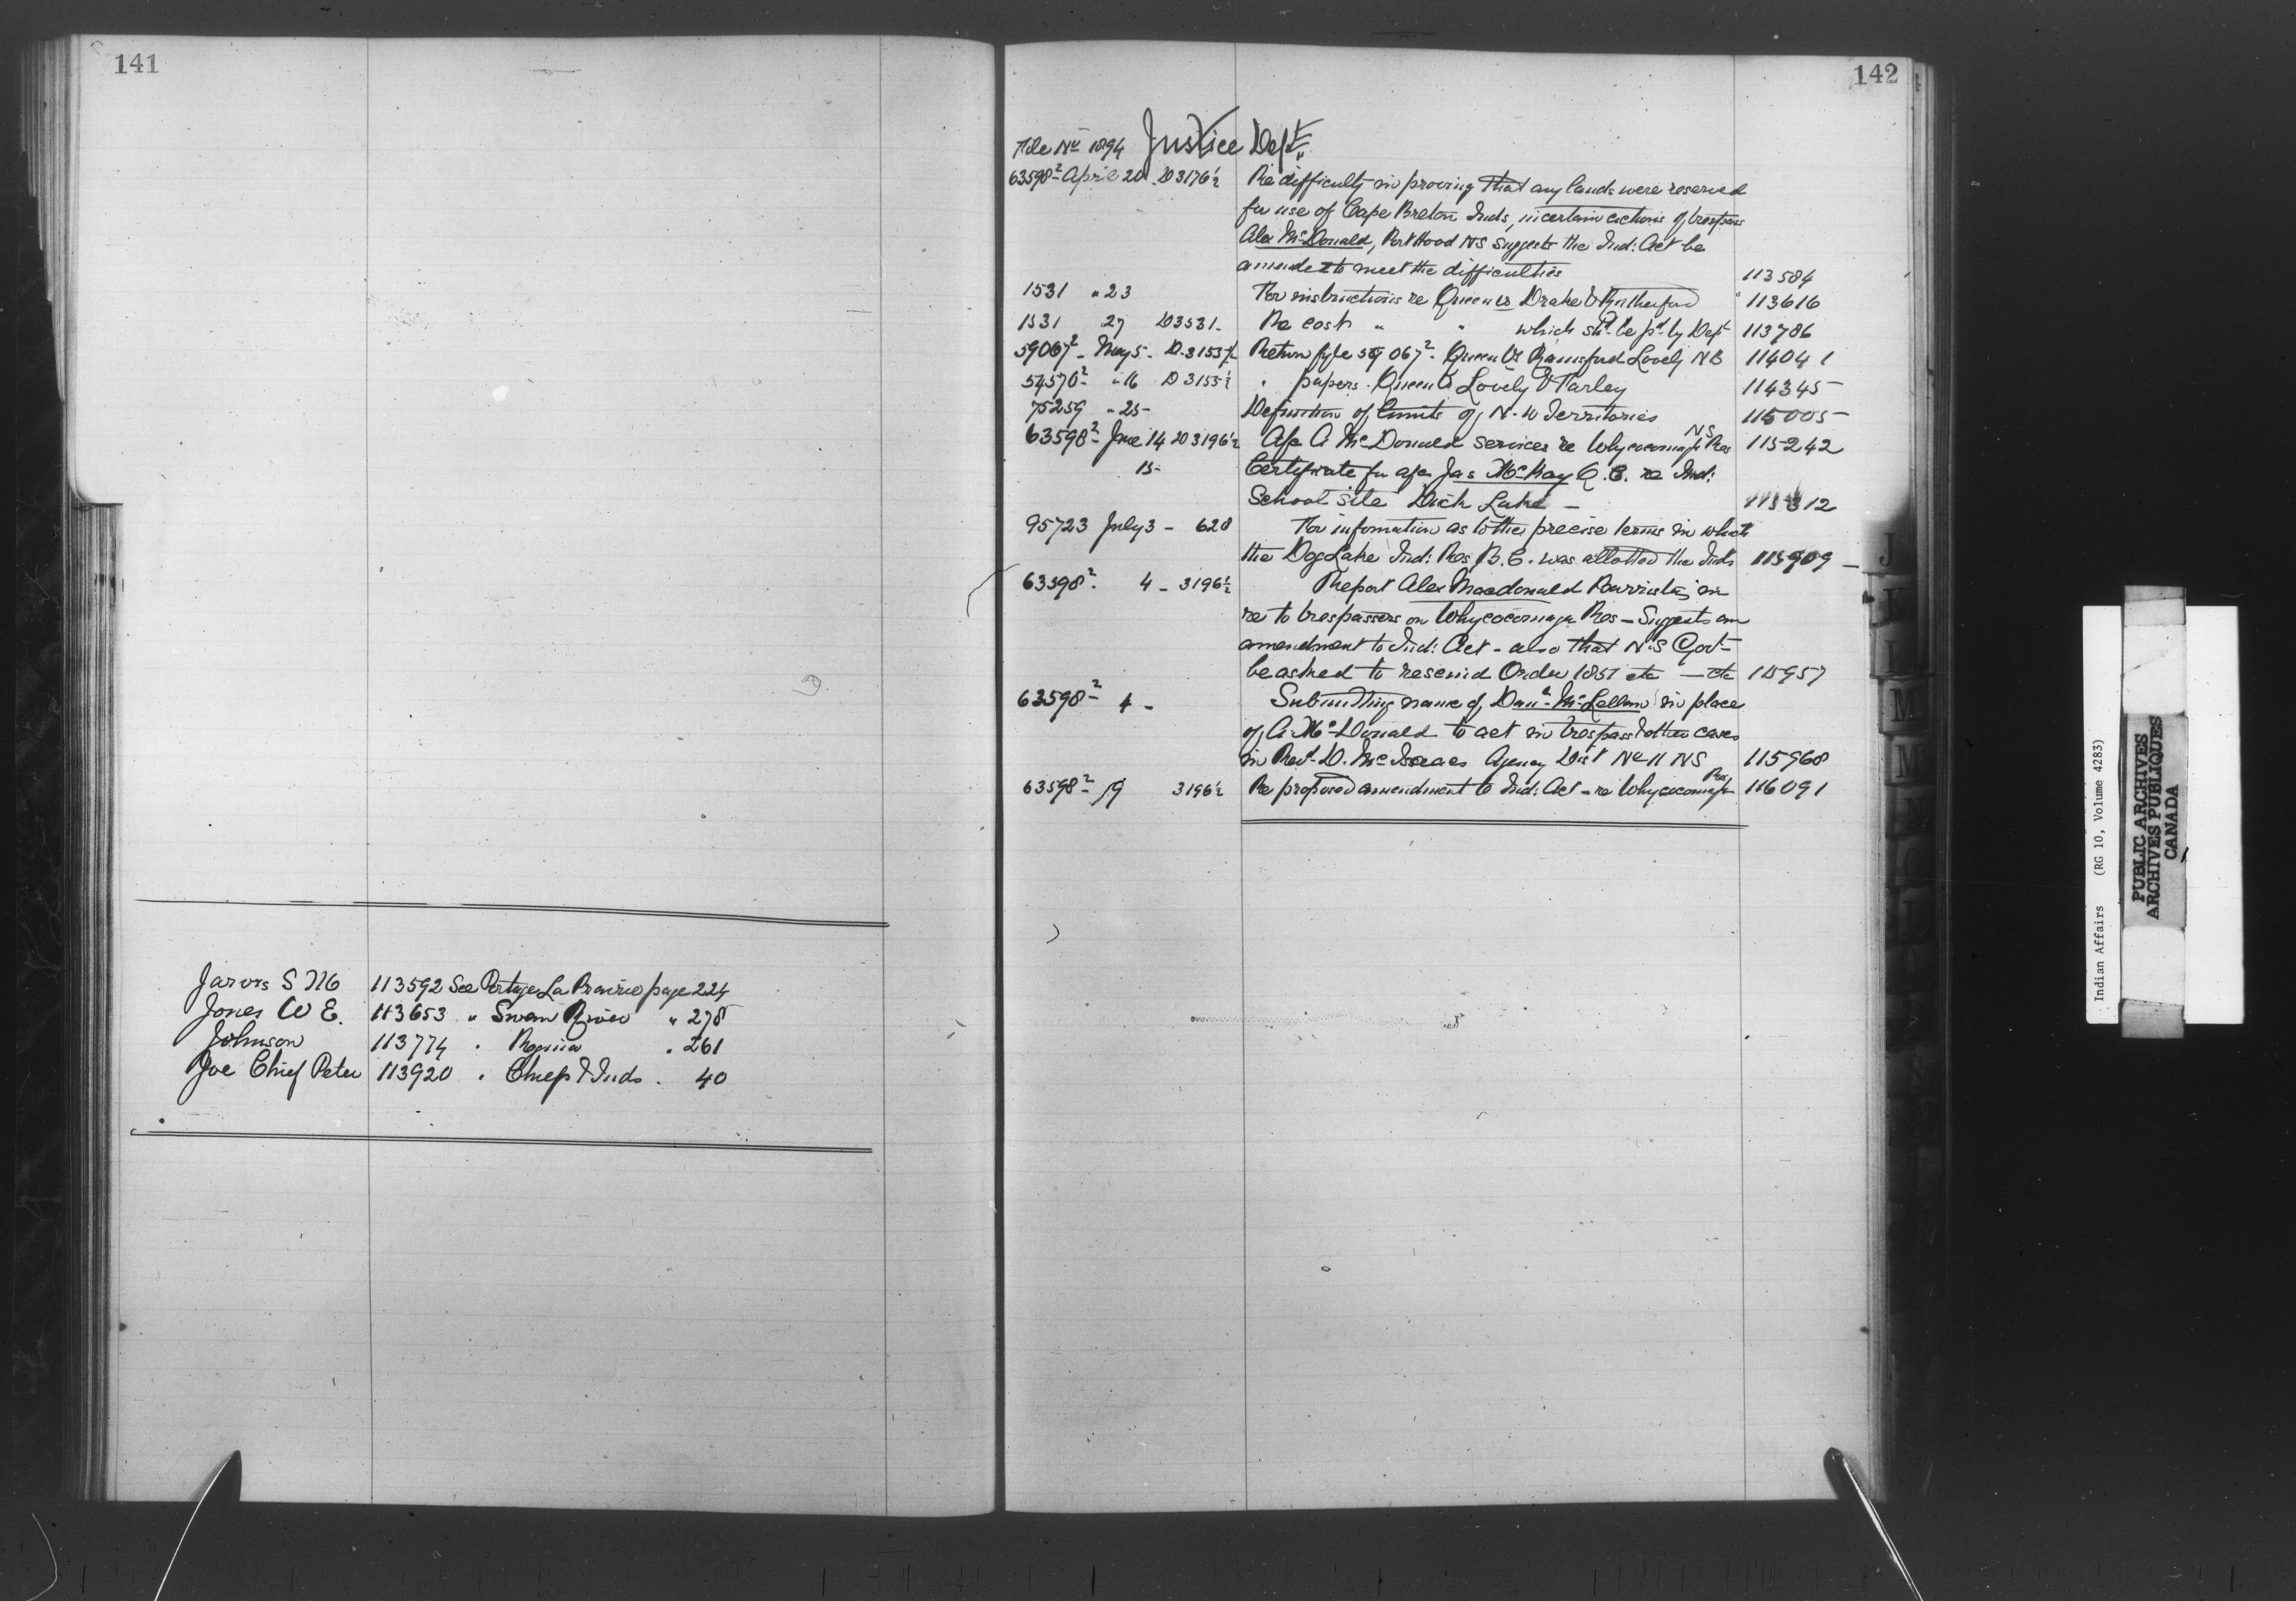 141
Jarvis S M 113592 See Portage La Prairie page 224
Jones W E. 113653 " Swan River " 278
Johnson 113774 " Regina " 261
Joe Chief Peter 113920 " Chiefs & Inds. 40
142
File No 1894 Justice Dept
63598² April 20 D3176½ Re difficulty in proving that any lands were reserved
for use of Cape Breton Inds, in certain actions of trespass
Alex McDonald, Port Hood NS suggests the Ind: Act be
amended to meet the difficulties 113584
1531 " 23 For instructions re Queen vs Drake & Rutherford 113616
1531 27 D3531 - Re cost " " which shd be pd by Dept 113786
59067² - May 5 - D.3153½ Return fyle 59067² - Queen vs Rainsford Lovely NB 114041
54570² " 16 D3153½ " papers - Queen vs Lovely & Farley 114345
75259 " 25 - Definition of limits of N. W Territories 115005
63598² June 14 D3196½ A/c A McDonald services re Whycocomagh Res NS 115242
15 - Certificate for a/c Jas McKay Q.C. re Ind:
School site Duck Lake - 115312
95723 July 3 - 628 For information as to the precise terms in which
the Dog Lake Ind: Res B.C. was allotted the Inds 115909
63598² 4 - 3196½ Report Alex Macdonald Barrister in
re to trespassers on Whycocomagh Res - Suggests an
amendment to Ind: Act - also that N.S Govt
be asked to rescind Order 1851 etc - etc 115957
63598² 4 - Submitting name of Danl McLellan in place
of A. McDonald to act in trespass & other cases
in Revd D. McIsaacs Agency Dist No 11 NS 115968
63598² 19 3196½ Re proposed amendment to Ind: Act - re Whycocomagh Res 116091
J
K
L
M
Indian Affairs (RG 10, Volume 4283)
PUBLIC ARCHIVES
ARCHIVES PUBLIQUES
CANADA